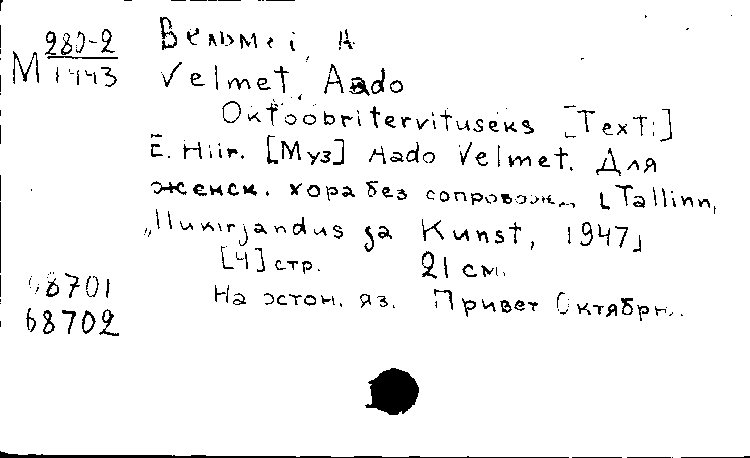 280-2
М 1443
Вельмет, А
Velmet, Aado
Oktoobritervituseks [Text:]
E. Hiir. [Муз] Aado Velmet. Для
женск. хора без сопровож. [Tallinn,
„Ilukirjandus ja Kunst, 1947]
[4] стр. 21 см.
На эстон. яз. Привет Октябрю.
68701
68702